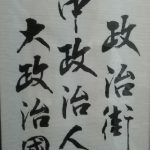 政治街
中政治人
大政治國